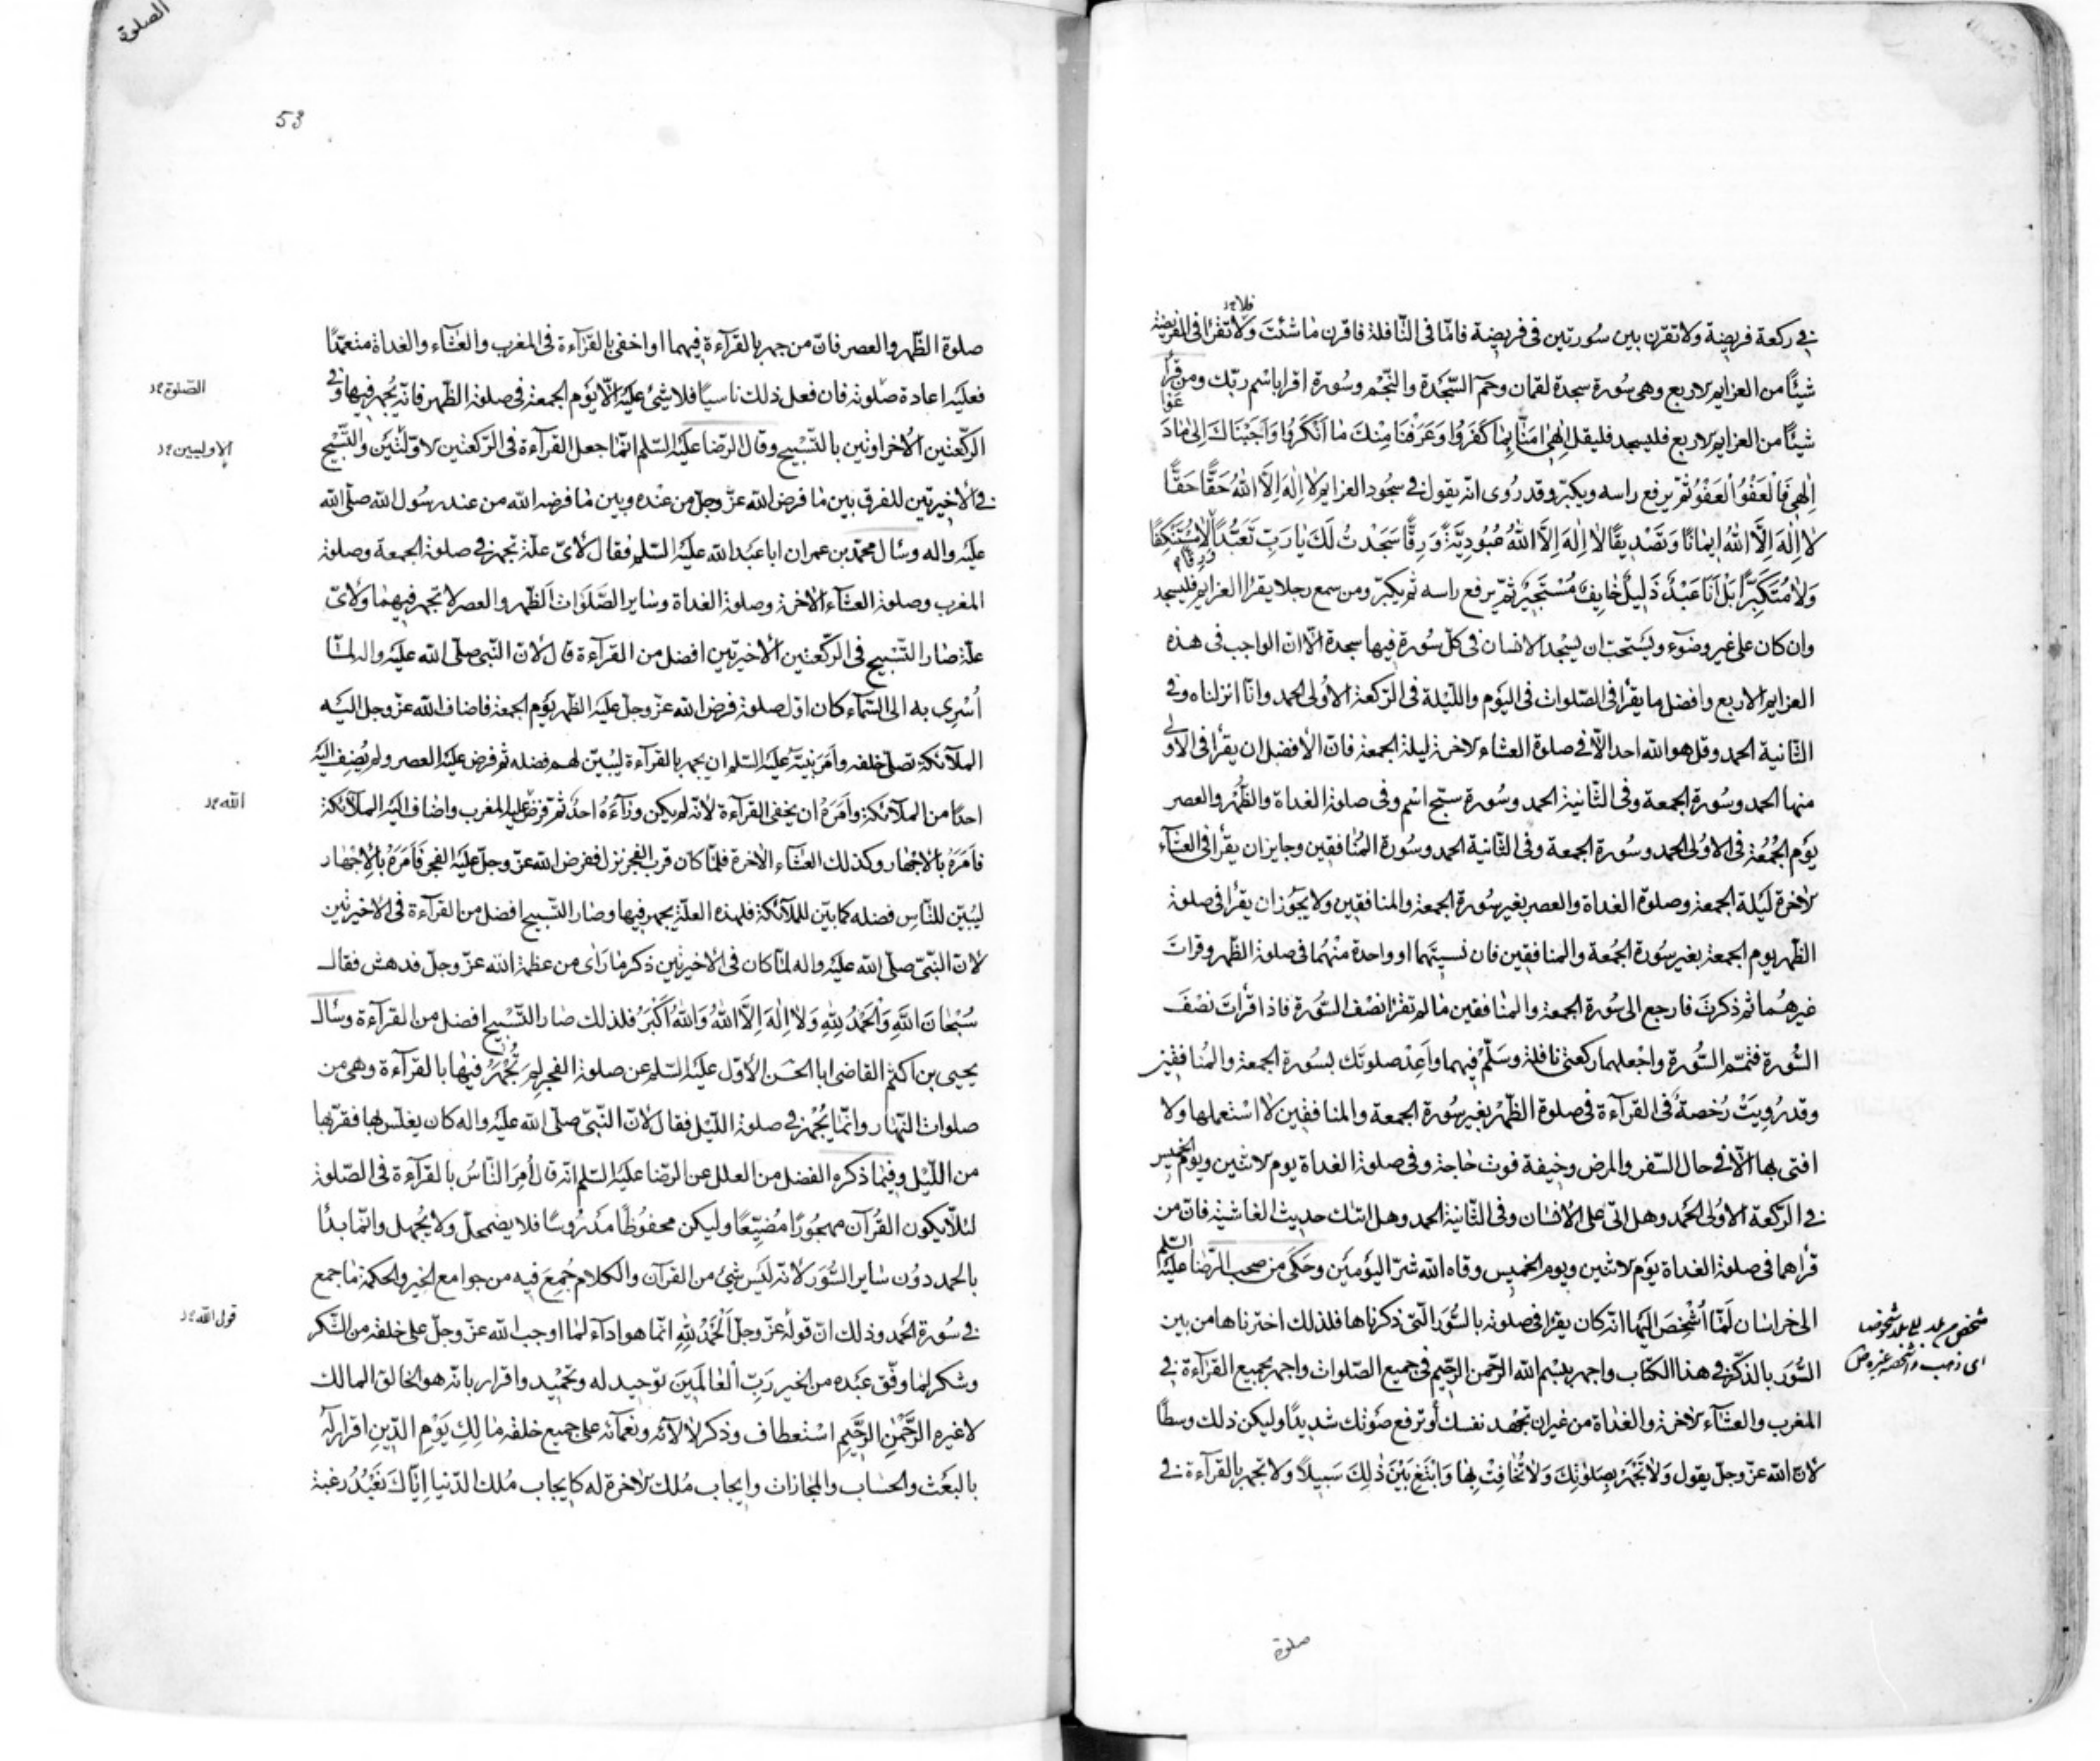 في ركعة فريضة ولا تقرن بين سورتين في فريضة فامّا في النّافلة فاقرن ما شئت ولا تقرأ في الفريضة
فلا
شيئًا من العزايم الاربع وهي سُورة سجدة لقمان وحم السّجدة والنّجم وسُورة اقرا باسم ربّك ومن قرأ
شيئًا من العزايم الاربع فليسجد فليقل الهي امَنّا بِما كَفَرُوا وَعَرَفْنا مِنْكَ ما اَنْكَرُوا وَاَجَبْناكَ اِلى ما دَعَوا
اِلهي فَالْعَفْوَ الْعَفْوَ ثمّ يرفع راسه ويكبّر وقد رُوي انّه يقول في سجُود العزايم لا اِلهَ اِلّا اللهُ حَقًّا حَقًّا
لا اِلهَ اِلَّا اللهُ اِيمانًا وَتَصْديقًا لا اِلهَ اِلَّا اللهُ عُبُودِيَّةً وَرِقًّا سَجَدْتُ لَكَ يا رَبِّ تَعَبُّدًا وَرِقًّا لا مُسْتَنْكِفًا
وَلا مُتَكَبِّرًا بَلْ اَنَا عَبْدٌ ذَلِيلٌ خايِفٌ مُسْتَجِيرٌ ثمّ يرفع راسه ثم يكبّر ومن سمع رجلا يقرا العزايم فليسجد
وان كان على غير وضوٓء ويستحبّ ان يسْجد الانسان في كلّ سُورة فيها سجدة الّا انّ الواجب في هذه
العزايم الاربع وافضل ما يقرأ في الصّلوات في اليَوم واللّيلة في الرّكعة الأولى الحمد وانّا انزلناه وفي
الثّانية الحمد وقل هو الله احد الّا في صلوة العشاء الاخرة ليلة الجمعة فانّ الأفضل ان يقرأ في الأولى
منها الحمد وسُورة الجمعة وفي الثّانية الحمد وسُورة سبّح اسْم وفي صلوة الغداة والظّهر والعصر
يَوم الجُمُعة في الاوُلى الحمد وسُورة الجمعة وفي الثّانية الحمد وسُورة المُنافقين وجايز ان يقرأ في العشآء
الاخرة ليَلة الجمعة وصلوة الغداة والعصر بغير سُورة الجمعة والمنافقين ولا يجوُز ان يقرأ في صلوة
الظّهر يوم الجمعة بغير سُورة الجُمعة والمنافقين فان نسيتَهما او واحدة منْهُما في صلوة الظّهر وقرات
غيرهُما ثم ذكرتَ فارجع الى سُورة الجمعة والمنافقين ما لم تقرا نصْف السُّورة فاذا قرأتَ نصْفَ
السُّورة فتمّم السُّورة واجْعلهما ركعتي نافلة وسَلّمْ فيهما واَعِدْ صلوتك بسُورة الجمعة والمُنافقين
وقد رُويَتْ رُخصةٌ في القرآءة في صلوة الظّهر بغير سُورة الجمعة والمنافقين لا اسْتعملها ولا
افتي بها الّا في حال السّفر والمرض وخيفة فوت حاجة وفي صلوة الغداة يوم الاثنين ويوم الخميس
في الرّكعة الاوُلى الحَمد وهل اتى على الإنسان وفي الثّانية الحمد وهل اتيك حديث الغاشية فانّ من
قرأهما في صلوة الغداة يَوم الاثنين ويوم الخميس وقاه الله شرّ اليَومَين وحَكَى من صحب الرّضا عليه السّلم
الى خراسان لَمّا اُشْخِصَ اليها انّه كان يقرا في صلوته بالسُّوَر الّتي ذكرناها فلذلك اخترناها من بين
السُّوَر بالذّكر في هذا الكتاب واجهر ببسْم الله الرّحمن الرّحيم في جميع الصّلوات واجهر بجميع القرآءة في
المغرب والعشآء الاخرة والغداة من غير ان تجْهد نفسك أو ترفع صَوتك شديدًا وليكن ذلك وسطًا
لأنّ الله عزّ وجلّ يقول وَلا تَجْهَرْ بِصَلوتِكَ وَلا تُخافِتْ بِها وَابْتَغِ بَيْنَ ذلِكَ سَبيلًا ولا تجهر بالقرآءة في
شخص من بلد الى بلد شخوصا
اى ذهب واشخصه غيره
صلوة
الصلوة
53
صلوة الظّهر والعصر فانّ من جهر بالقرآءة فيهما او اخفى بالقرآءة في المغرب والعشآء والغداة متعمّدًا
فعليَه اعادة صلوته فان فعل ذلك ناسيًا فلا شيئ عليَه الّا يَوم الجمعة في صلوة الظّهر فانّه يُجهر فيها وفي
الصّلوة
الركّعتين الاخراوتين بالتّسْبيح وقال الرّضا عليَه السّلم انّما جعل القرآءة في الرّكعتين الاوّلتَين والتَّسْبيح
الاوليين
في الأخيرتين للفرق بين ما فرض الله عزّ وجلّ من عنْده وبين ما فرضه الله من عند رسُول الله صلّى الله
عليَه واله وسأل محمّد بن عمران ابا عَبدالله عليَه السّلم فقال لأيّ علّة تجهر في صلوة الجمعة وصلوة
المغرب وصلوة العشآء الاخرة وصلوة الغداة وساير الصَّلَوات الظّهر والعصر لا تجهر فيهما ولأيّ
علّة صار التّسْبيح في الرّكعتين الأخيرتين افضل من القرآءة قال لأنّ النّبي صلّى الله عليَه واله لمّا
اُسْرِي به الى السّمآء كان اوّل صلوة فرض الله عزّ وجلّ عليَه الظّهر يَوم الجمعة فاضاف الله عزّ وجل اليَه
الملآئكة تصلّي خلفه وأمَرَ نبيّه عليَه السّلم ان يجهر بالقرآءة ليُبيّن لهم فضله ثم فرض عليَه العصر ولم يُضِف اليَه
احدًا من الملآئكة واَمَرَهُ ان يخفي القرآءة لأنّه لم يكن ورآءَهُ احدٌ ثمّ فرض عليه المغرب واضاف اليَه الملآئكة
الله
فاَمَرَهُ بالأجْهار وكذلك العشآء الاخرة فلمّا كان قرب الفجر نزل ففرض الله عزّ وجلّ عليَه الفجر فَاَمَرَهُ بالإجْهار
ليُبيّن للنّاس فضله كما بيّن للملآئكة فلهذه العلّة يجهر فيها وصار التّسبيح افضل من القرآءة في الاخيرتين
لانّ النّبيّ صلّى الله عليَه واله لمّا كان في الأخيرتين ذكر ما رَأى من عظمة الله عزّ وجلّ فدهش فقال
سُبْحانَ اللهِ وَالْحَمْدُ لِلّهِ وَلا اِلهَ اِلَّا اللهُ وَاللهُ اَكْبَرُ فلذلك صار التّسْبيح افضل من القرآءة وسأل
يحيى بن اكثم القاضي ابا الحسَن الأوّل عليَه السّلم عن صلوة الفجر لِمَ تُجْهَرُ فيها بالقرآءة وهي من
صلوات النّهار وانّما يُجْهر في صلوة اللّيل فقال لأنّ النّبيّ صلّى الله عليَه واله كان يغلّس بها فقرّبها
من اللّيل وفيما ذكره الفضل من العلل عن الرّضا عليَه السّلم انّه قال أمِرَ النّاسُ بالقرآءة في الصّلوة
لئلّا يكون القُرآن مهجُورًا مُضيّعًا وليكن محفُوظًا مَدْروُسًا فلا يضمحلّ ولا يُجهل وانّما بدأ
بالحمد دوُن ساير السُّوَر لأنّه ليَس شيئ من القرآن والكلام جُمِعَ فيه من جوامع الخير والحكمة ما جمع
في سُورة الحَمد وذلك انّ قولَه عزّ وجلّ اَلْحَمْدُ لِلّهِ انّما هو اداء لما اوجب الله عزّ وجلّ على خلقه من الشّكر
قول الله
وشكر لما وفّق عَبْده من الخير رَبِّ الْعالَمينَ توحيد له وتحميد واقرار بانّه هو الخالق المالك
لا غيره الرَّحْمنِ الرَّحيمِ اسْتعطاف وذكر لألآئه ونعمآئه على جميع خلقه مالِكِ يَوْمِ الدّينِ اقرار له
بالبعَث والحساب والمجازات وايجاب مُلك الاخرة له كايجاب مُلك الدّنيا اِيّاكَ نَعْبُدُ رغبة